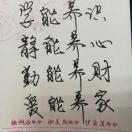 学能养识
静能养心
勤能养财
爱能养家